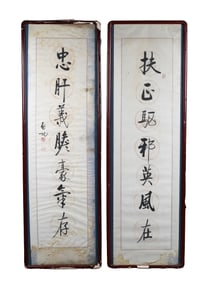 扶正驅邪英風在
忠肝義膽豪氣存